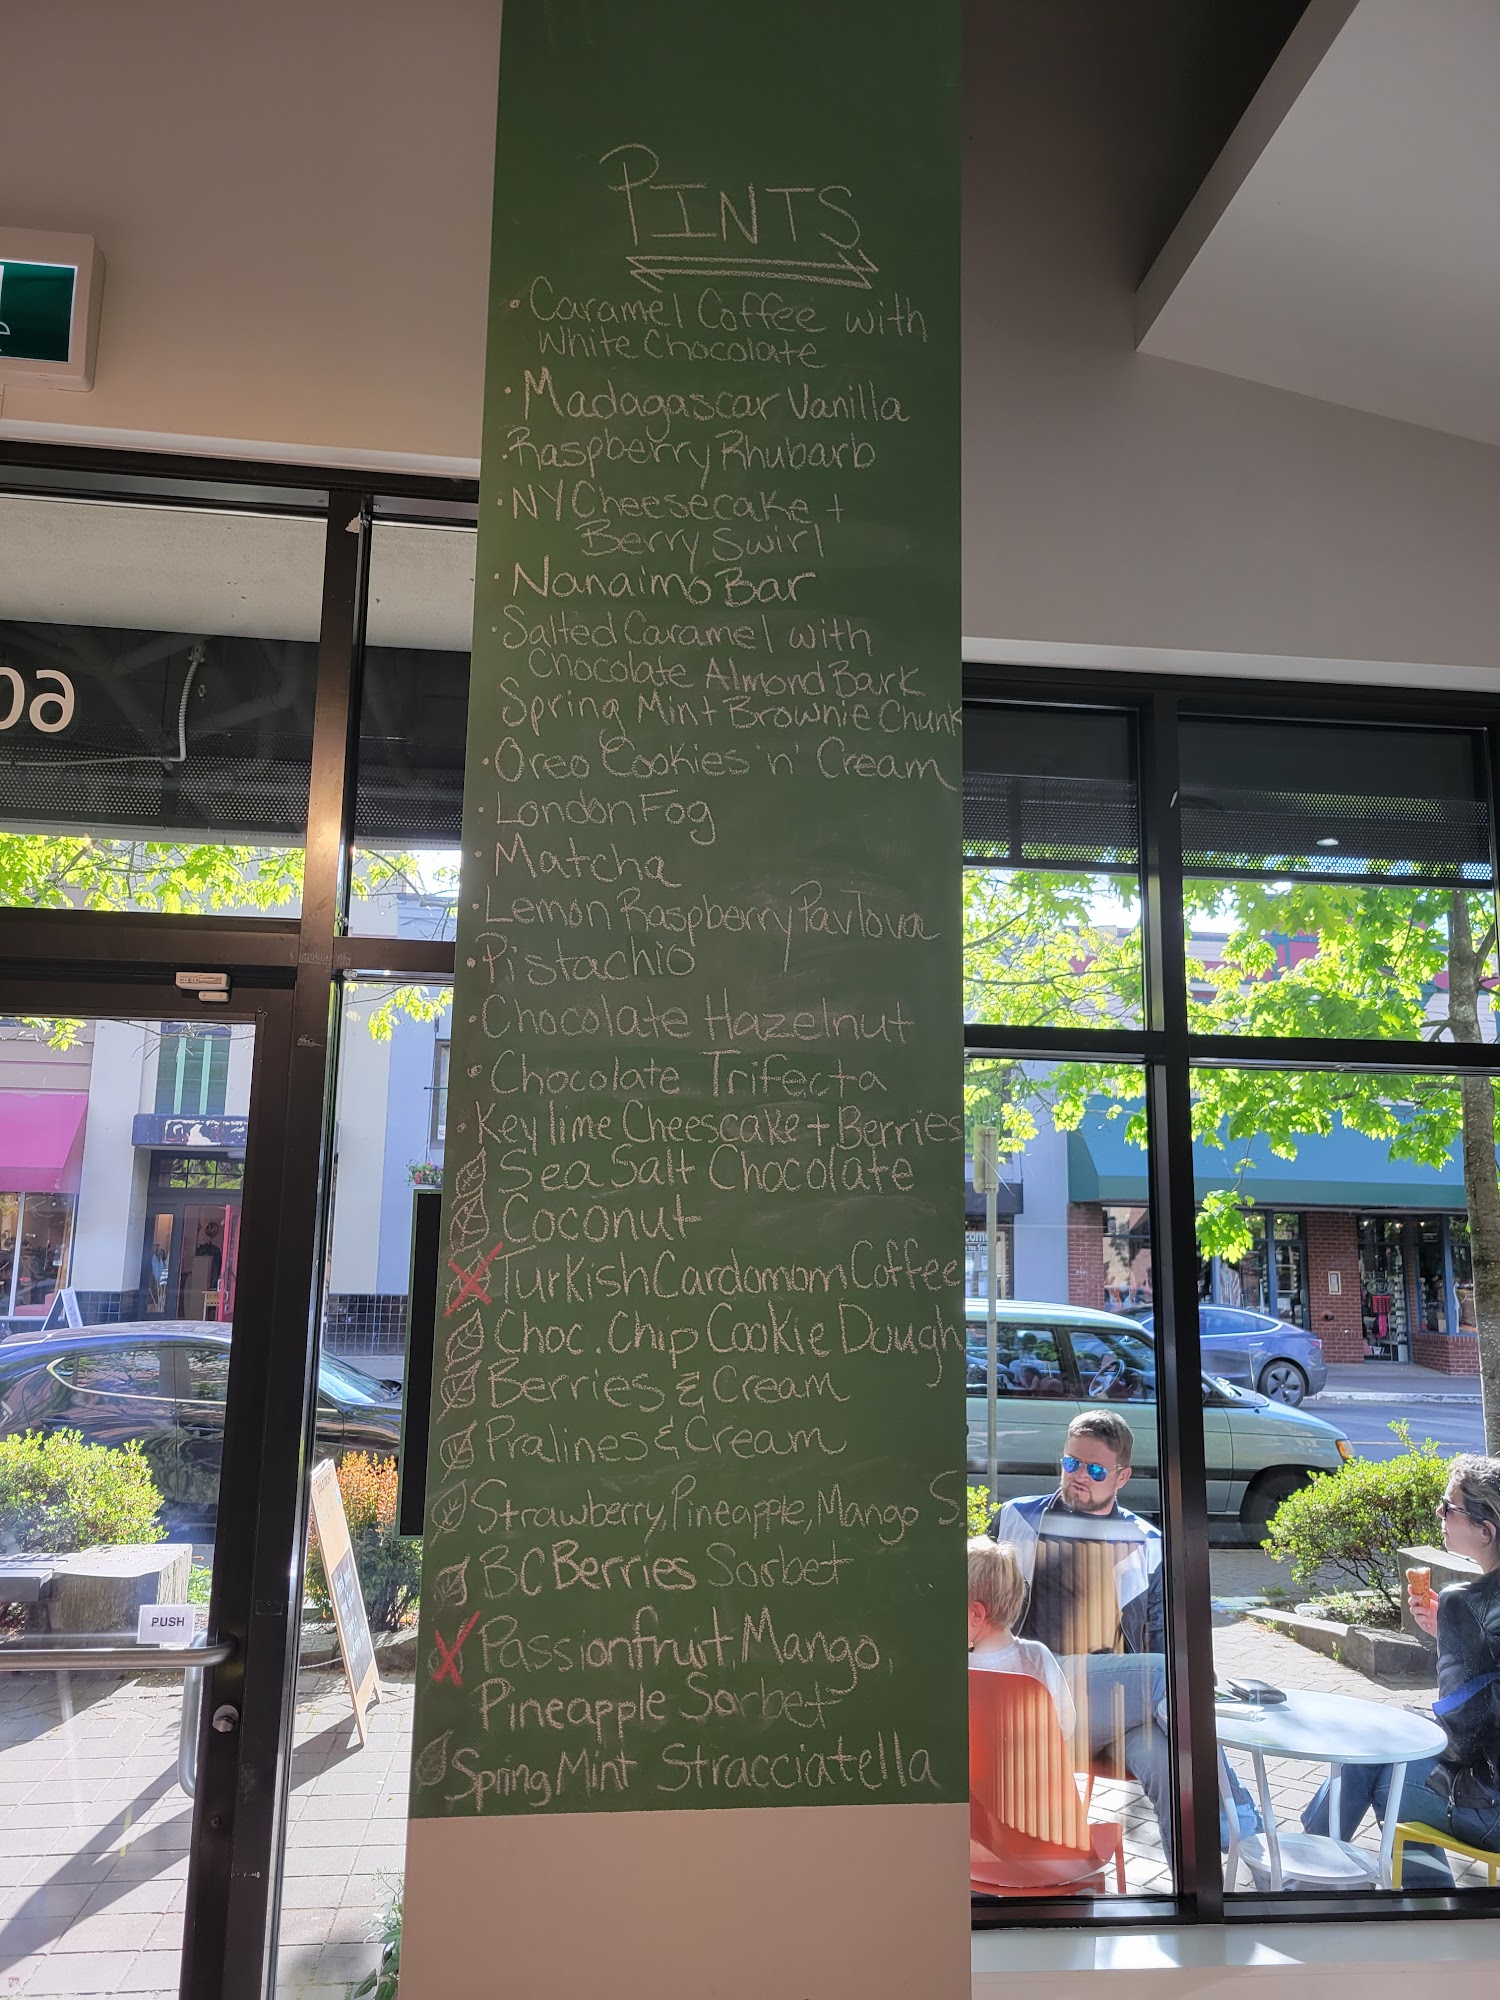 PINTS
• Caramel Coffee with
White Chocolate
• Madagascar Vanilla
• Raspberry Rhubarb
• NY Cheesecake +
Berry Swirl
• Nanaimo Bar
• Salted Caramel with
Chocolate Almond Bark
• Spring Mint Brownie Chunk
• Oreo Cookies 'n' Cream
• London Fog
• Matcha
• Lemon Raspberry Pavlova
• Pistachio
• Chocolate Hazelnut
• Chocolate Trifecta
• Key lime Cheescake + Berries
Sea Salt Chocolate
Coconut
Turkish Cardomom Coffee
Choc. Chip Cookie Dough
Berries & Cream
Pralines & Cream
Strawberry, Pineapple, Mango S.
BC Berries Sorbet
Passionfruit, Mango,
Pineapple Sorbet
Spring Mint Stracciatella
PUSH